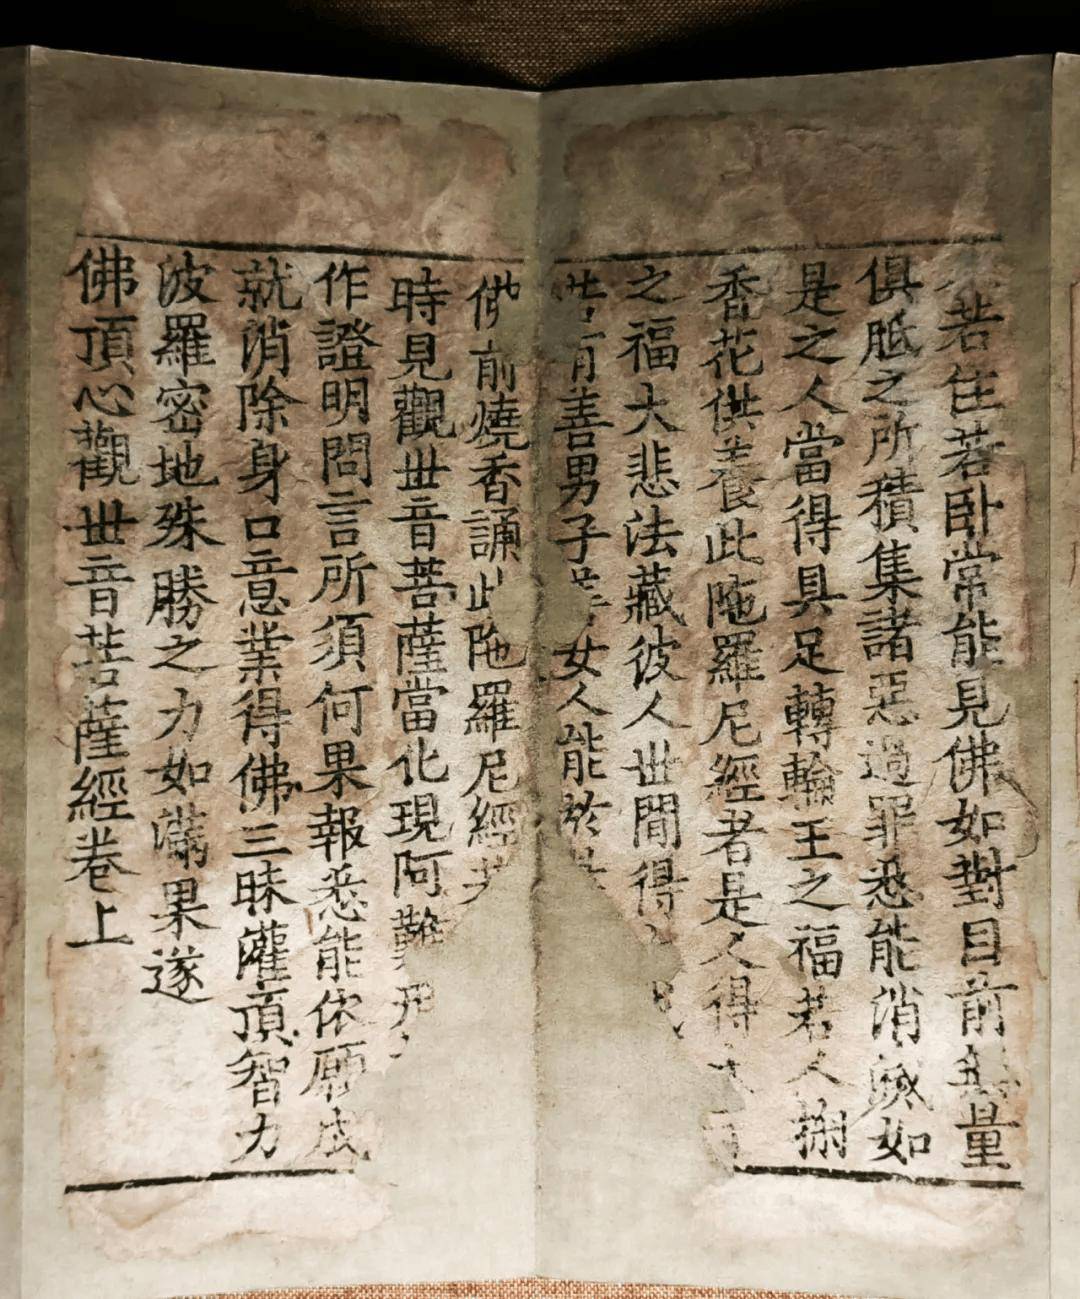 若住若卧常能見佛如對目前無量
俱胝之所積集諸惡過罪悉能消滅如
是之人當得具足轉輪王之福若人捌
香花供養此陁羅尼經者是人得
之福大悲法藏彼人世間得
善男子女人能於
佛前燒香誦此陁羅尼經
時見觀世音菩薩當化現阿難
作證明問言所須何果報悉能依願成
就消除身口意業得佛三昧灌頂智力
波羅密地殊勝之力如滿果遂
佛頂心觀世音菩薩經卷上